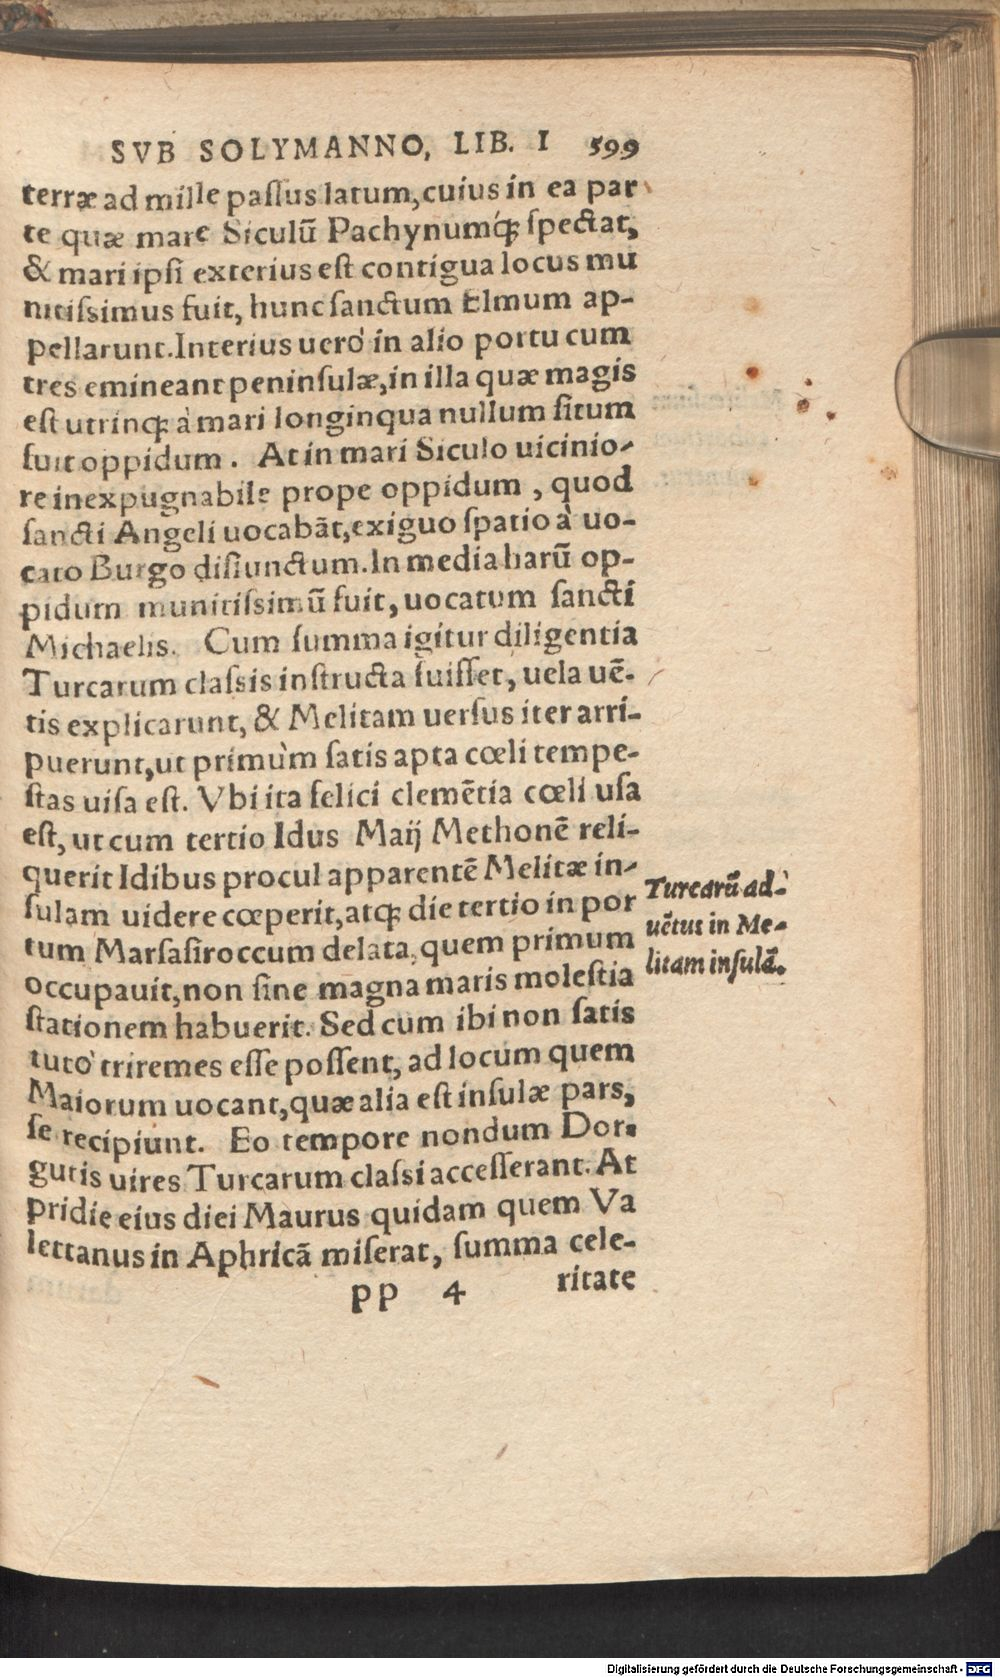 SVB SOLYMANNO, LIB. I 599
terræ ad mille paſſus latum, cuius in ea par
te quæ mare Siculũ Pachynumq́ꝫ ſpectat,
& mari ipſi exterius eſt contigua locus mu
nitiſsimus fuit, hunc ſanctum Elmum ap-
pellarunt. Interius uerò in alio portu cum
tres emineant peninſulæ, in illa quæ magis
eſt utrinqꝫ à mari longinqua nullum ſitum
fuit oppidum. At in mari Siculo uicinio-
re inexpugnabile prope oppidum, quod
ſancti Angeli uocabãt, exiguo ſpatio à uo-
cato Burgo diſiunctum. In media harũ op-
pidum munitiſsimũ fuit, uocatum ſancti
Michaelis. Cum ſumma igitur diligentia
Turcarum claſsis inſtructa fuiſſet, uela uẽ-
tis explicarunt, & Melitam uerſus iter arri-
puerunt, ut primùm ſatis apta cœli tempe-
ſtas uiſa eſt. Vbi ita felici clemẽtia cœli uſa
eſt, ut cum tertio Idus Maij Methonẽ reli-
querit Idibus procul apparentẽ Melitæ in-
ſulam uidere cœperit, atqꝫ die tertio in por
tum Marſaſiroccum delata, quem primum
occupauit, non ſine magna maris moleſtia
ſtationem habuerit. Sed cum ibi non ſatis
tutò triremes eſſe poſſent, ad locum quem
Maiorum uocant, quæ alia eſt inſulæ pars,
ſe recipiunt. Eo tempore nondum Dor-
gutis uires Turcarum claſsi acceſſerant. At
pridie eius diei Maurus quidam quem Va
lettanus in Aphricã miſerat, ſumma cele-
pp 4 ritate
Turcarũ ad-
uẽtus in Me-
litam inſulã.
Digitalisierung gefördert durch die Deutsche Forschungsgemeinschaft - DFG